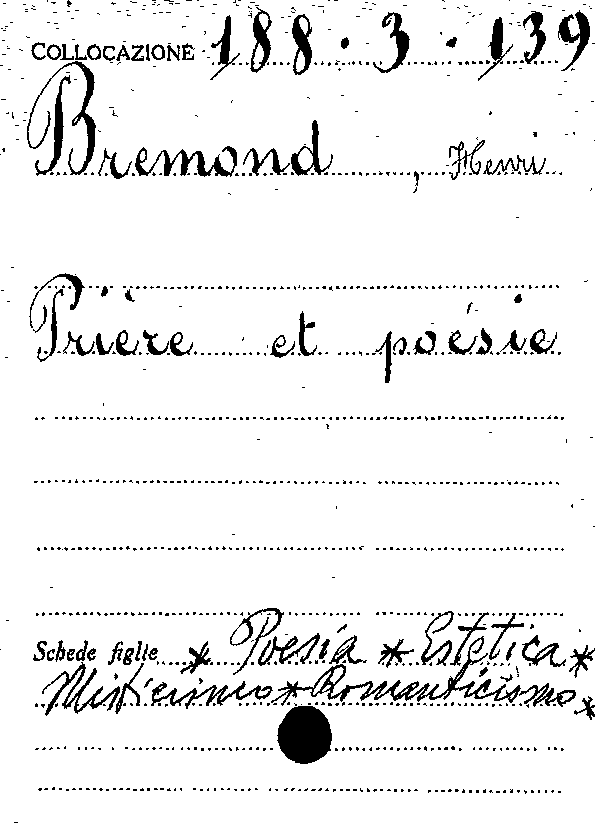 COLLOCAZIONE 188.3.139
Bremond, Henri
Prière et poésie
Schede figlie * Poesia * Estetica *
Misticismo * Romanticismo *